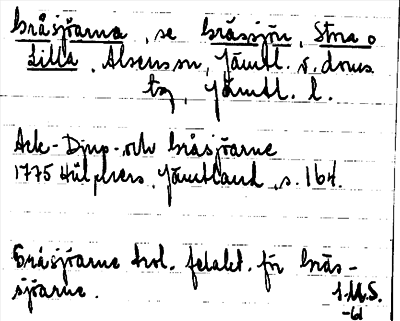 Gråsjöarna, se Gråssjön, Stora o
Lilla, Alsens sn, Jämtl. v. doms
tg, Jämtl. l.
Ack- Djup- och Gråsjöarne
1775 Hülphers, Jämtland, s. 164.
Gråsjöarne trol. felakt. för Gräs-
sjöarne. S.M.S.
-61